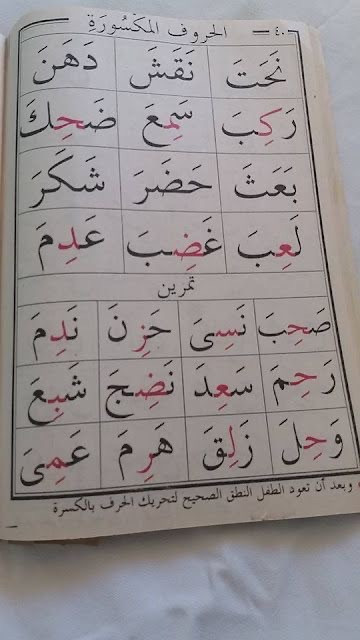 ٤٠ الحروف المكسُورَةِ
نَحَتَ نَقَشَ دَهَنَ
رَكِبَ سَمِعَ ضَحِكَ
بَعَثَ حَضَرَ شَكَرَ
لَعِبَ غَضِبَ عَدِمَ
تمرين
صَحِبَ نَسِىَ حَزِنَ نَدِمَ
رَحِمَ سَعِدَ نَضِجَ شَبِعَ
وَحِلَ زَلِقَ هَرِمَ عَمِىَ
وبعد أن تعود الطفل النطق الصحيح لتحريك الحرف بالكسرة